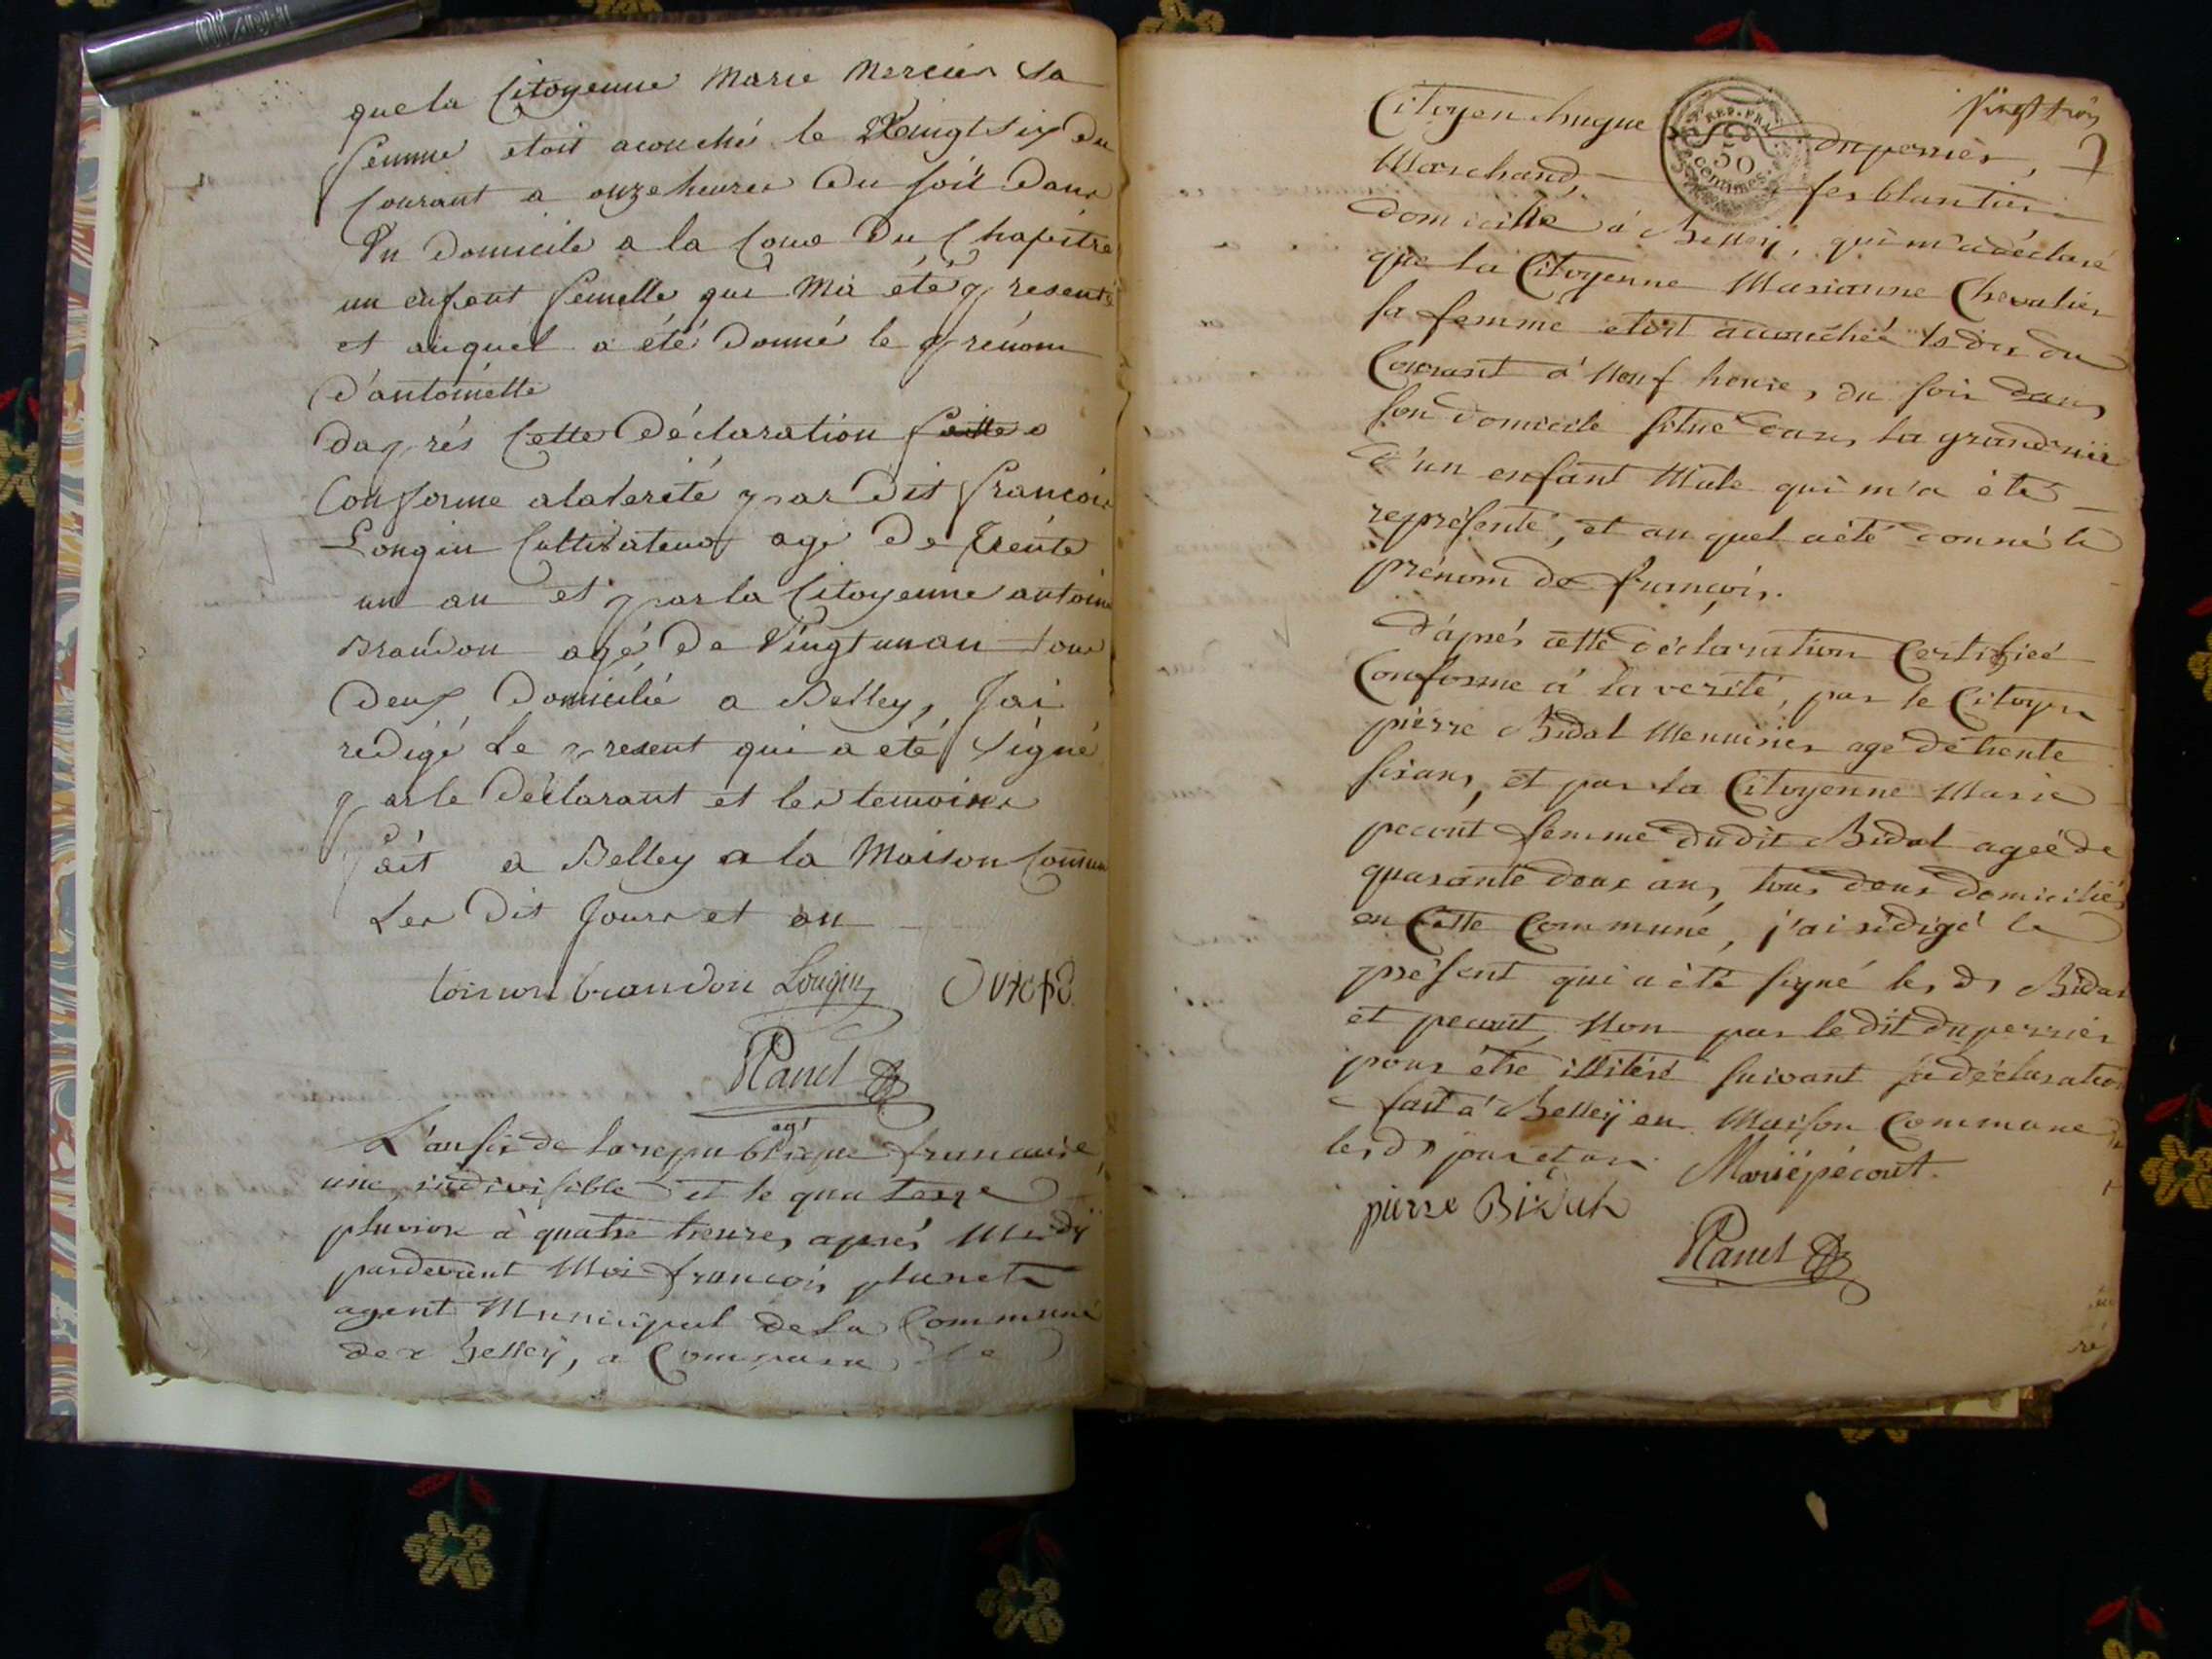 que la Citoyenne Marie Mercier Sa
femme etoit acouché le Vaingt six Du
Courant a onze heures Du soir Dans
Un Domicile a la Cour Du Chapitre
un enfant femelle qui Mà été presenté
et auquel a été Donné le prénom
D'antoinette
Daprés Cette Déclaration faitte
Conforme alaVerité par Dit françois
Longin Cultivateur agé De trente
un an et par la Citoyenne antoine
Brandon agé De Vingt un an tous
Deux Domicilié a Belley, Jai
redigé Le present qui a eté Signé
par le Déclarant et les temoins
fait a Belley a la Maison Commune
Les Dit Jours et an
toinon brandon Longin
Planet
agt
L'an six de la republique francaise
une indivisible et le quatorze
pluviose à quatre heures aprés Midÿ
pardevant Moi françois planet
agent Municipal de la Commune
de Belleÿ, a Comparu le
vingt trois
Citoyen hugue duperrier,
Marchand, ferblantier
domicillié à Belleÿ, qui m'a déclaré
que la Citoyenne Marianne Chevalier
sa femme etoit accouchée le dix du
Courant à Neuf heures du soir dans
son domicile situé dans la grand'ruë
d'un enfant Male qui m'a été
représenté, et auquel a été donné le
prénom de françois.
D'aprés cette déclaration Certifiée
Conforme à la verité, par le Citoyen
pierre Bidal Menuisier agé de trente
six ans, et par la Citoyenne Marie
pecout femme dudit Bidal agée de
quarante deux ans, tous deux domiciliés
en Cette Commune, j'ai rédigé le
présent qui a été signé les ds Bidal
et pecout, Non par le dit duperrier
pour être illitéré suivant sa déclaration
fait à Belleÿ en Maison Commune
les ds jour et an. Marie pécout.
pierre Bidal
Planet
REP. FRA.
50
Centimes.